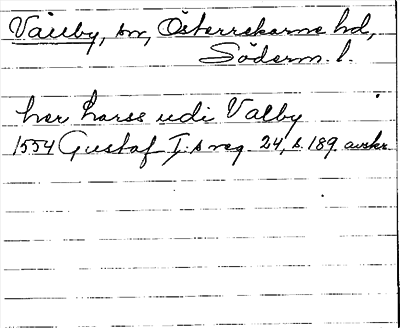 Vallby, sn, Österrekarne hd,
Söderm. l.
her Larsse udi Valby
1554 Gustaf I:s reg. 24, s. 189 avskr.